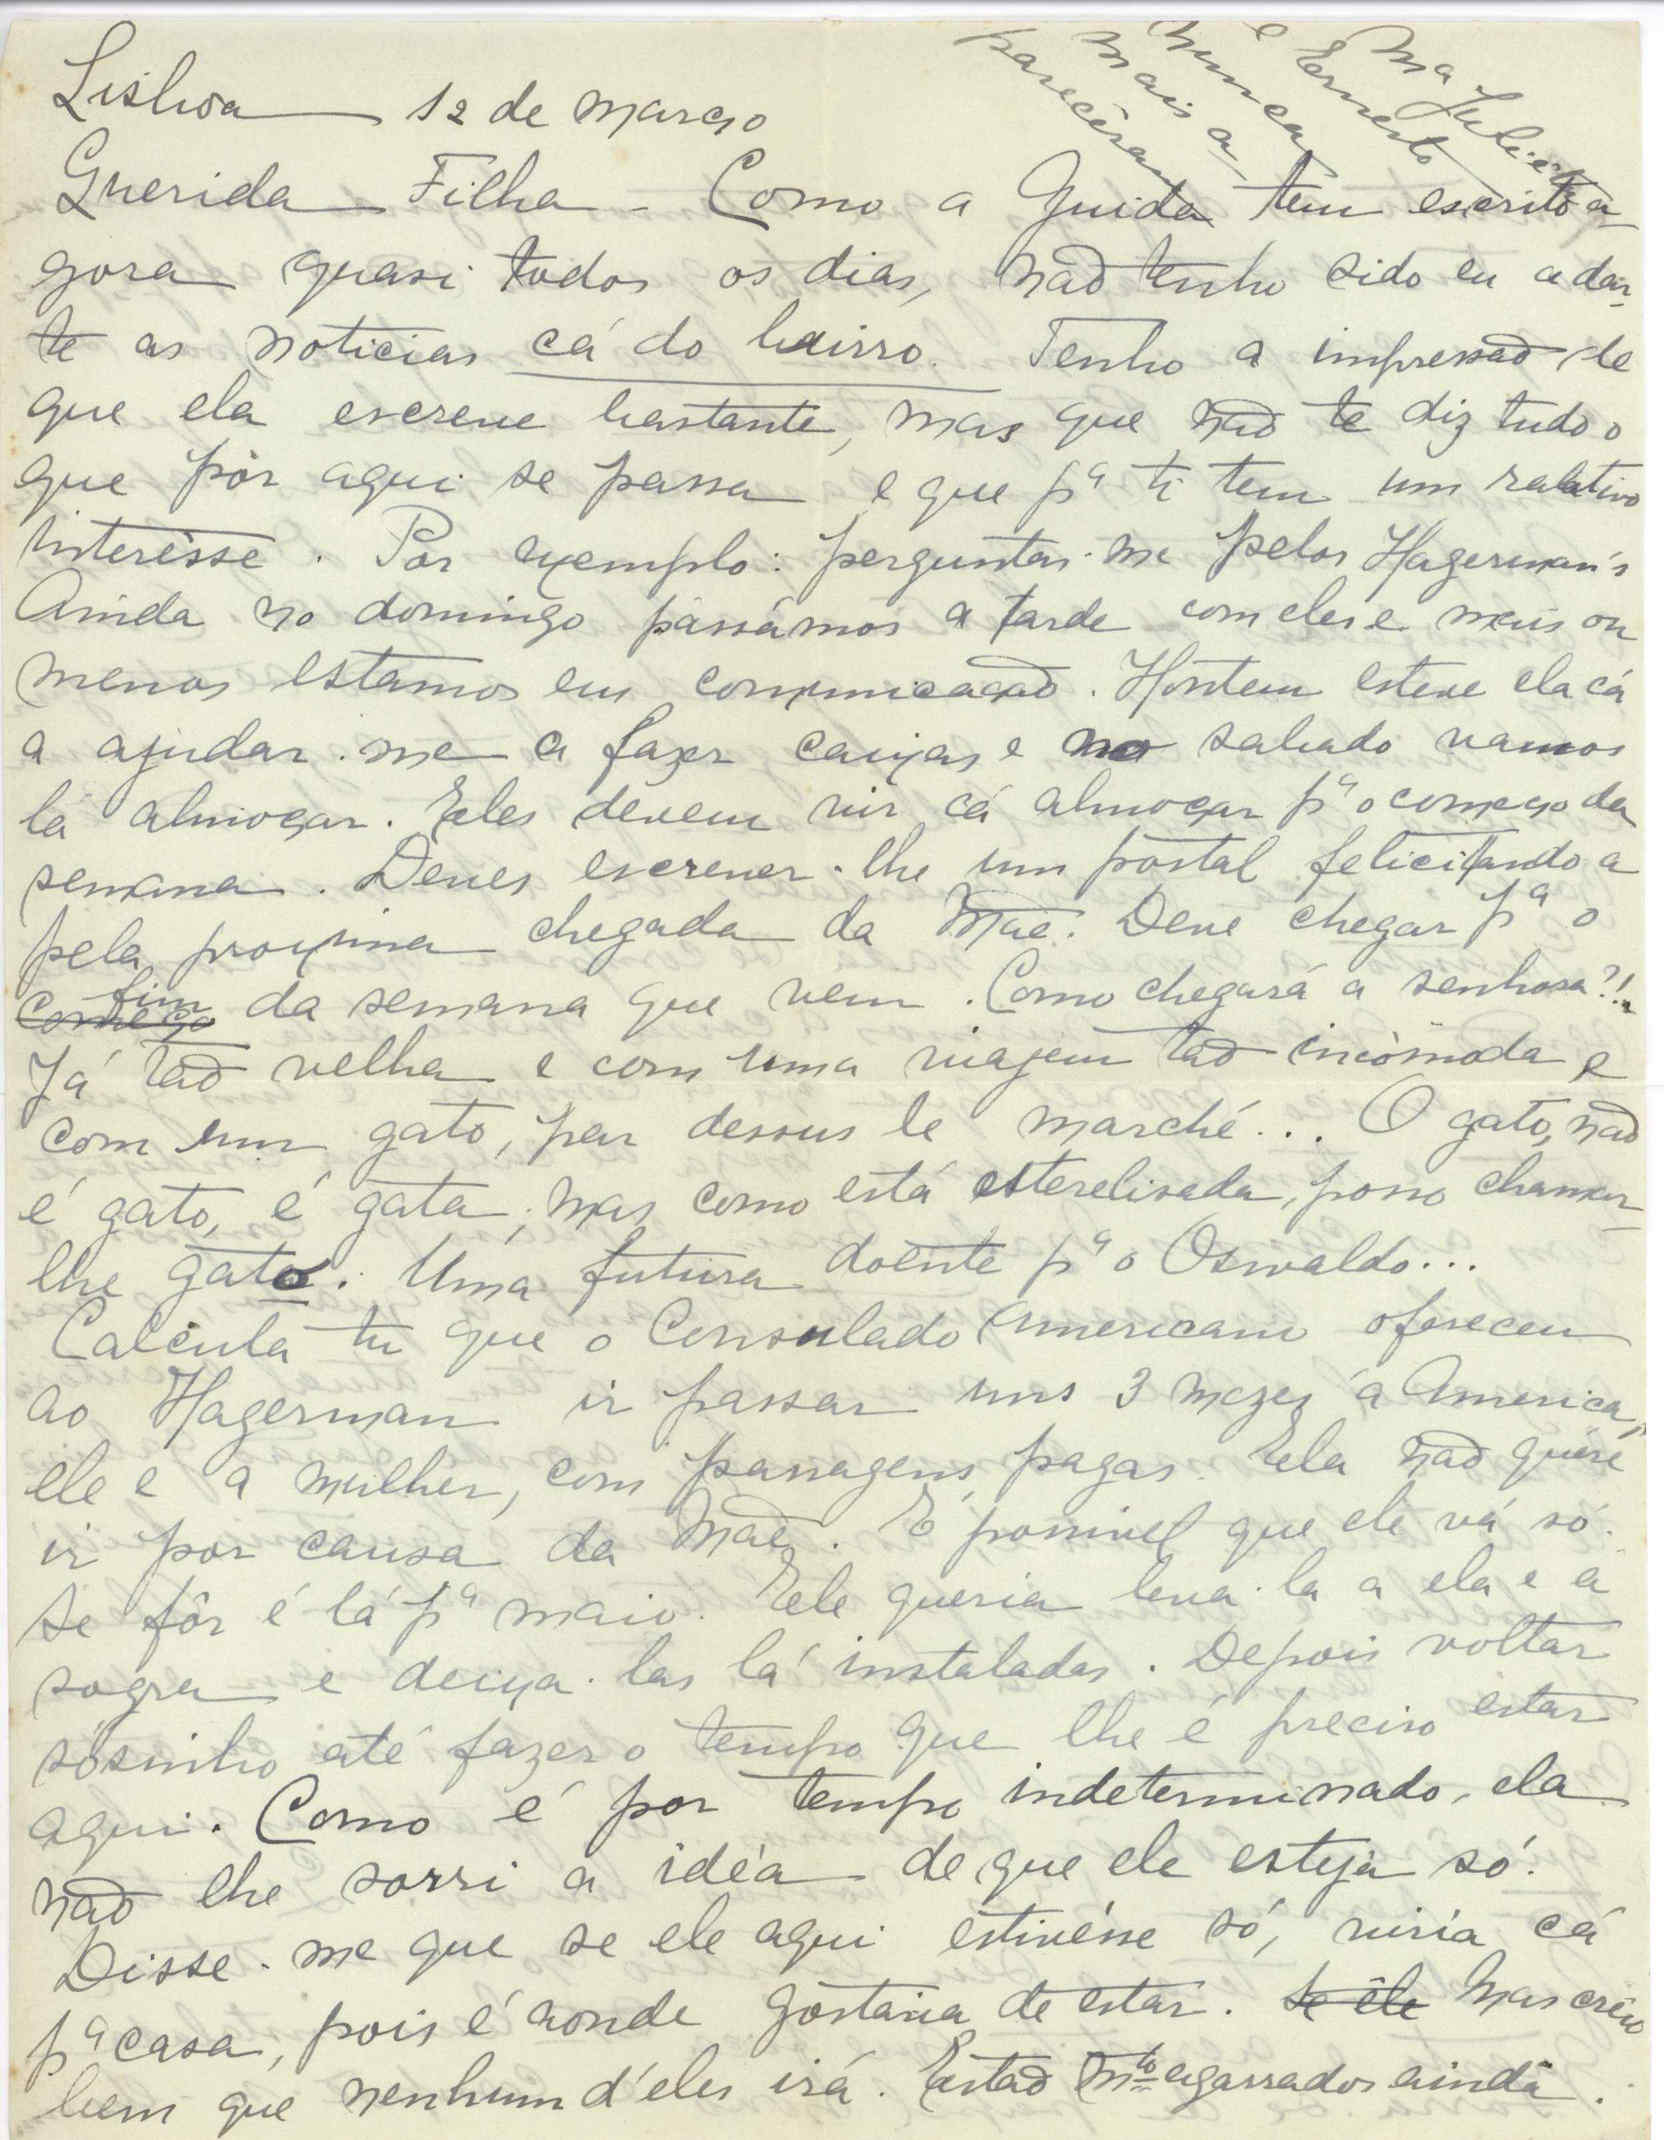 Ma Julieta
e Ernesto
nunca
mais a-
parecêram
Lisboa 12 de março
Querida Filha - Como a Guida tem escrito a-
gora quasi todos os dias, não tenho sido eu a dar-
te as noticias cá do bairro. Tenho a impressão de
que ela escreve bastante, mas que não te diz tudo o
que pòr aqui se passa e que pª ti tem um relativo
interêsse. Por exemplo: perguntas-me pelos Hagerman's
Ainda no domingo passámos a tarde com eles e mais ou
menos estamos em comunicação. Hontem esteve ela cá
a ajudar-me a fazer caixas e no sabado vamos
lá almoçar. Eles devem vir cá almoçar pª o começo da
semana. Deves escrever-lhe um postal felicitando a
pela proxima chegada da Mãe. Deve chegar pª o
começo fim da semana que vem. Como chegará a senhora?!
Já tão velha e com uma viajem tão incòmoda e
com um gato, par dessus le marché... O gato, não
é gato, é gata, mas como está esterelisada, posso chamar-
lhe gato. Uma futura doente pª o Oswaldo...
Calcula tu que o Consulado Americano ofereceu
ao Hagerman ir passar uns 3 mezes á America,
ele e a mulher, com passagens pagas. Ela não quere
ir por causa da Mãe. É possivel que ele vá só.
Se fôr é lá pª maio. Ele queria leva-la a ela e á
sogra e deixa-las lá instaladas. Depois voltar
sósinho até fazer o tempo que lhe é preciso estar
aqui. Como é por tempo indeterminado, ela
não lhe sorri a idéa de que ele esteja só.
Disse-me que se ele aqui estivésse só, viria cá
pª casa, pois é aonde gostaria de estar. Se êle Mas creio
bem que nenhum d'eles irá. Estão mto agarrados ainda.